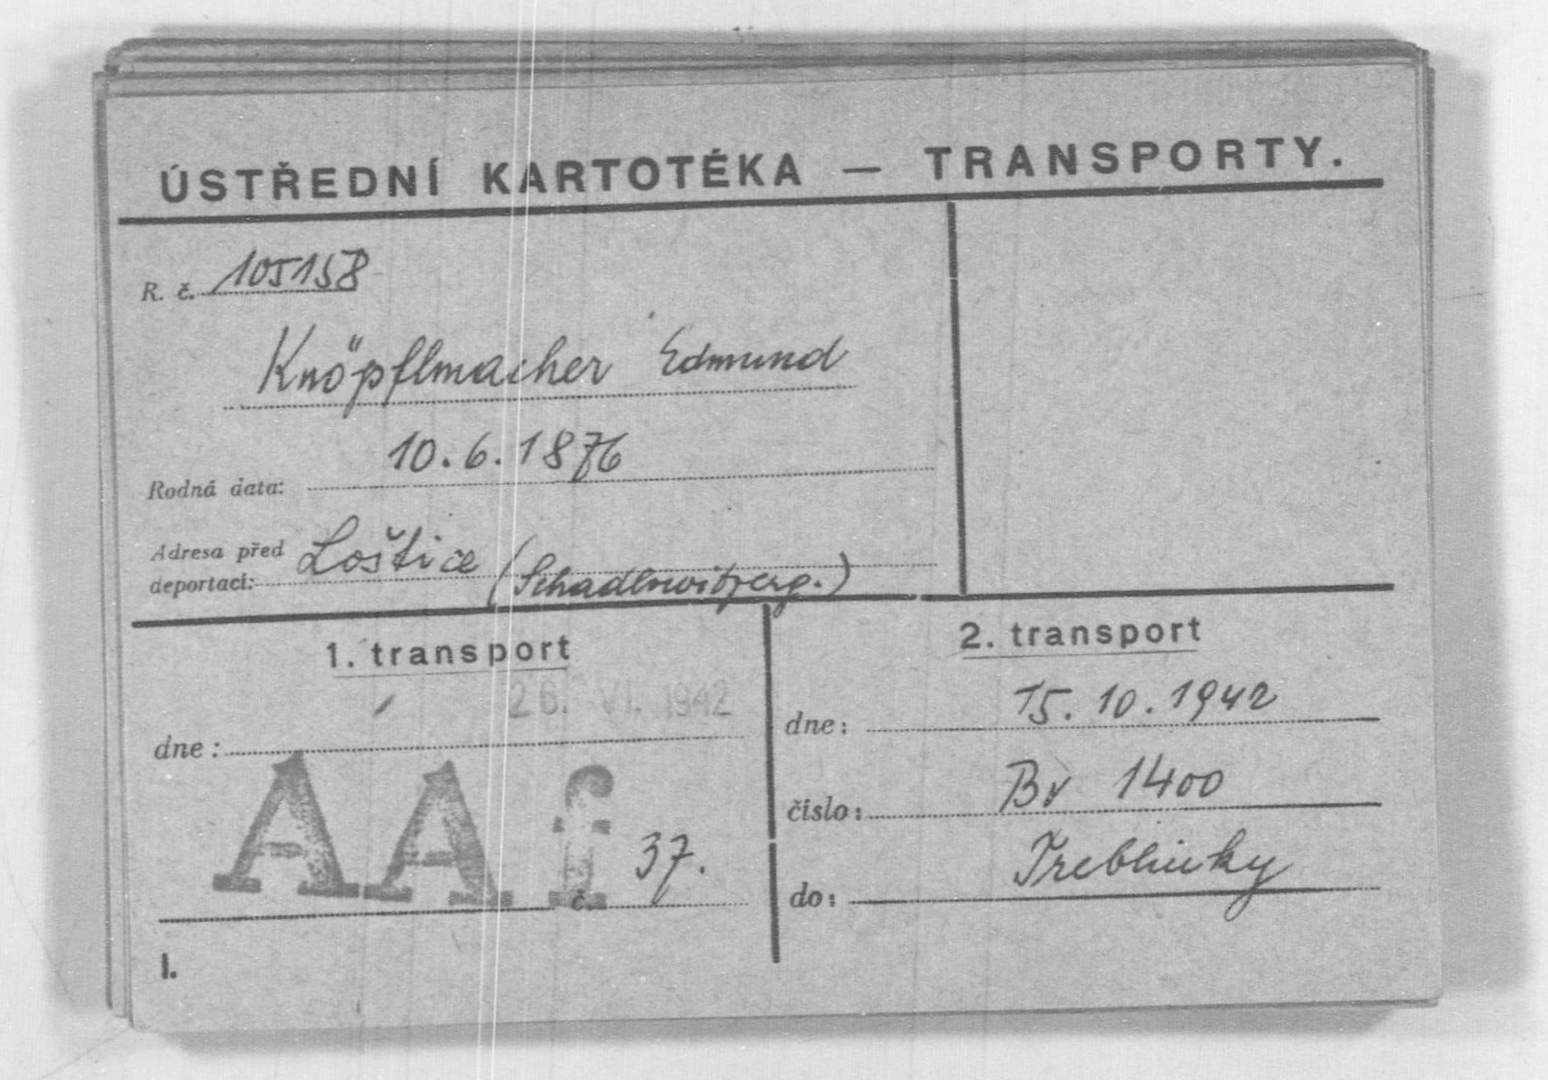 ÚSTŘEDNÍ KARTOTÉKA — TRANSPORTY.
R. č. 105158
Knöpflmacher Edmund
Rodná data: 10.6.1876
Adresa před
deportací: Loštice
1. transport
26. VI. 1942
dne:
AAf
č. 37.
2. transport
dne: 15.10.1942
číslo: Bv 1400
do: Treblinky
I.